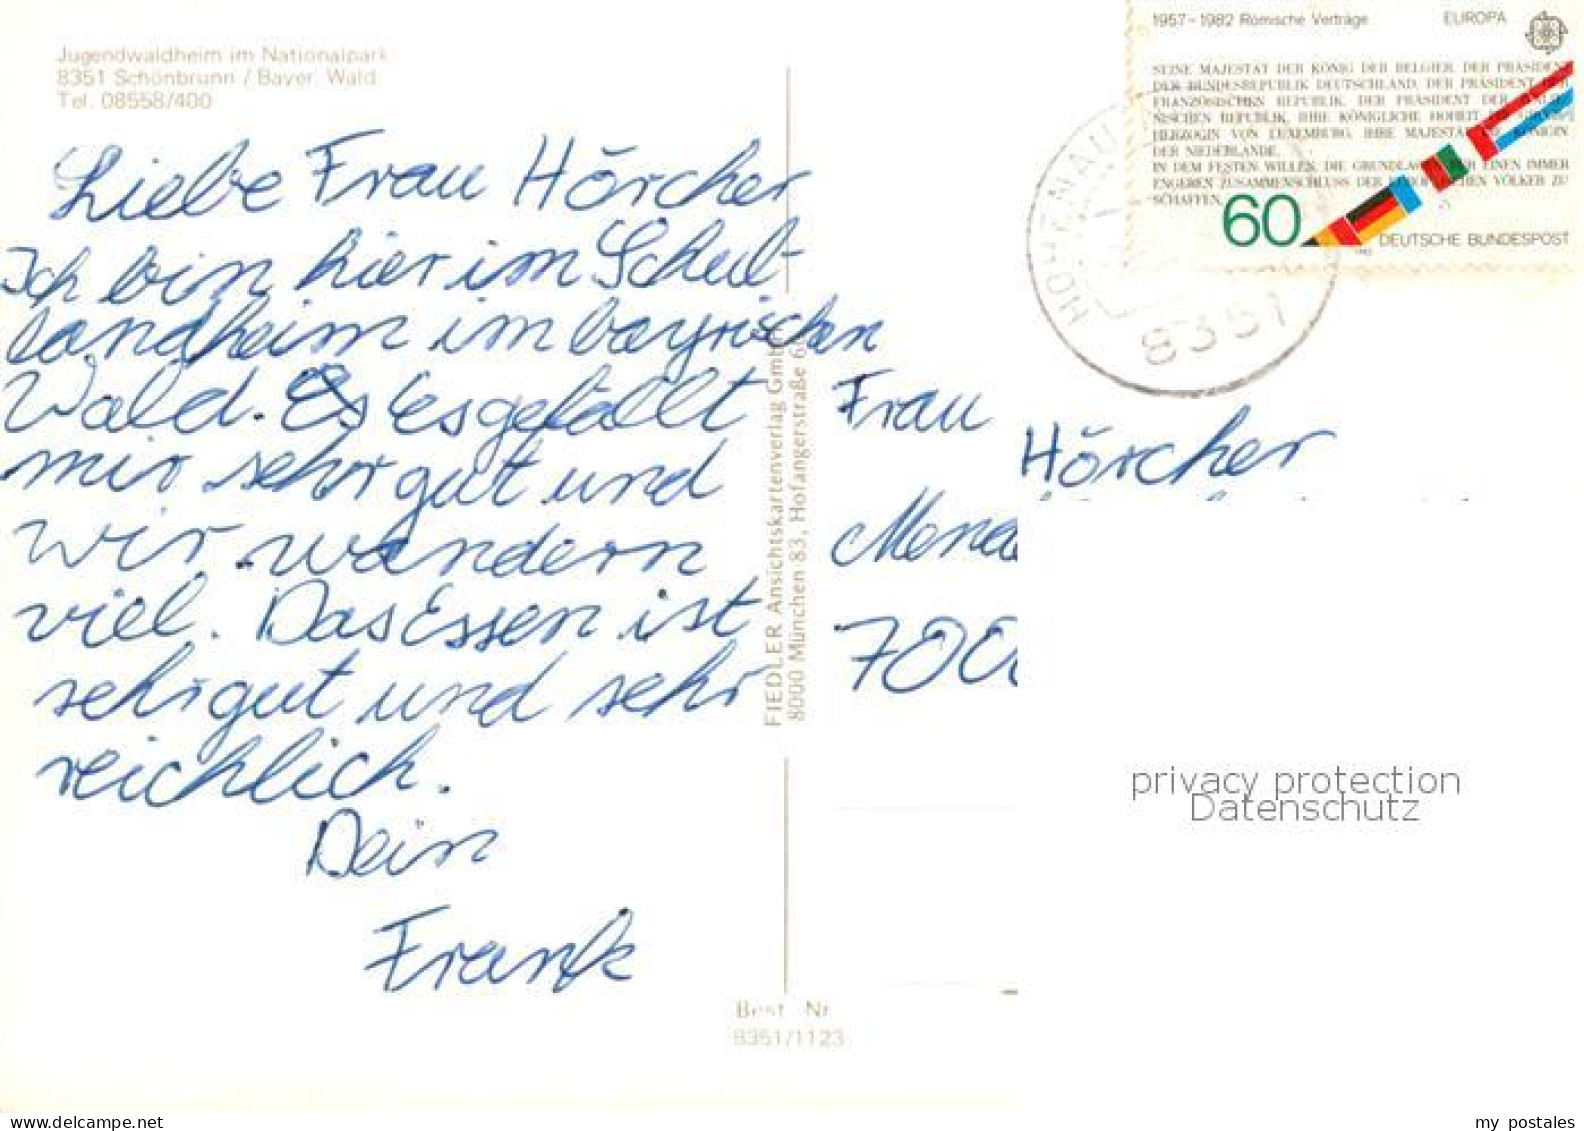 Jugendwaldheim im Nationalpark
8351 Schönbrunn / Bayer. Wald
Tel. 08558/400
Liebe Frau Hörcher
Ich bin hier im Schul-
landheim im bayrischen
Wald. Es gefällt
mir sehr gut und
wir wandern
viel. Das Essen ist
sehr gut und sehr
reichlich.
Dein
Frank
FIEDLER Ansichtskartenverlag GmbH
8000 München 83, Hofangerstraße
Best. Nr.
8351/1123
1957-1982 Römische Verträge EUROPA
SEINE MAJESTÄT DER KÖNIG DER BELGIER, DER PRÄSIDENT
DER BUNDESREPUBLIK DEUTSCHLAND, DER PRÄSIDENT DER
FRANZÖSISCHEN REPUBLIK, DER PRÄSIDENT DER
NISCHEN REPUBLIK, IHRE KÖNIGLICHE HOHEIT
HERZOGIN VON LUXEMBURG, IHRE MAJESTÄT KÖNIGIN
DER NIEDERLANDE,
IN DEM FESTEN WILLEN, DIE EINEN IMMER
ENGEREN ZUSAMMENSCHLUSS DER VÖLKER ZU
SCHAFFEN,
60
DEUTSCHE BUNDESPOST
HOHENAU
8351
Frau
Hörcher
privacy protection
Datenschutz
my postales